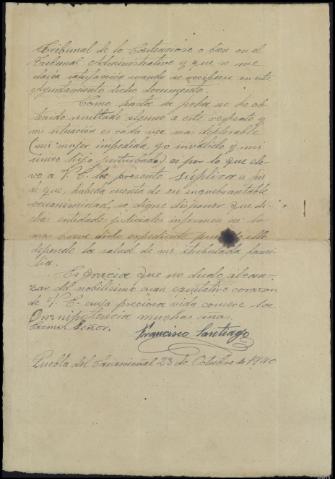 Tribunal de lo Contencioso o bien en el
Tribunal Administrativo y que se me
daria satisfacion cuando se recibiese en este
Ayuntamiento dicho documento.
Como hasta la fecha no he ob
tenido resultado alguno a este respecto y
mi situación es cada vez mas deplorable
(mi mujer impedida, yo invalido y mi
unico hijo
es por lo que ele
va a V. E. la presente súplica a fin
de que, habida cuenta de su inquebrantable
magnanimidad, se digne disponer que di
cha entidad judicial informe
dicho expediente pues de ello
depende la salud de mi atribulada fami
lia.
Es gracia que no dudo alcan
zar del nobilísimo cuan caritativo corazon
de V. E. cuya preciosa vida conserve la
Omnipotencia muchos años.
Excmo. Señor.
Francisco Santiago
Puebla del Caramiñal 23 de Octubre de 1940